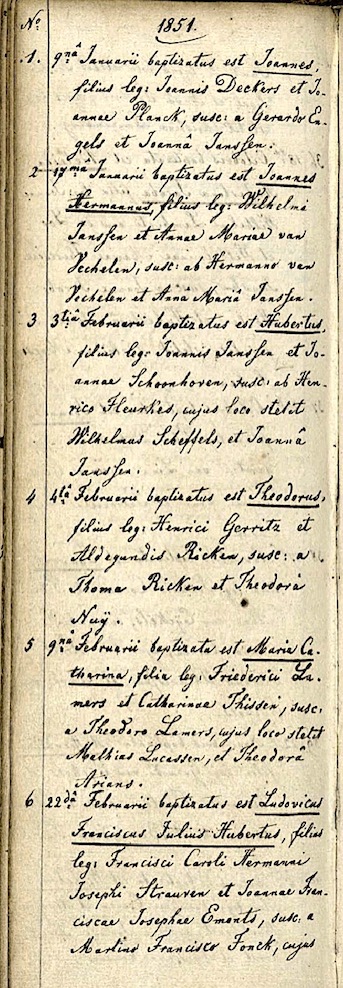 No 1851.
1. 9nâ Januarii baptizatus est Joannes,
filius leg: Joannis Deckers et Jo-
annae Planck, susc: a Gerardo En-
gels et Joannâ Janssen.
2 17ma Januarii baptizatus est Joannes
Hermannus, filius leg: Wilhelmi
Janssen et Annae Mariae van
Vechelen, susc: ab Hermanno van
Vechelen et Annâ Mariâ Janssen.
3 3tiâ Februarii baptizatus est Hubertus,
filius leg: Joannis Janssen et Jo-
annae Schoonhoven, susc: ab Hen-
rico Fleurkes, cujus loco stetit
Wilhelmus Scheffels, et Joannâ
Janssen.
4 4tâ Februarii baptizatus est Theodorus,
filius leg: Henrici Gerritz et
Aldegundis Ricken, susc: a
Thoma Ricken et Theodorâ
Nuÿ.
5 9nâ Februarii baptizata est Maria Ca-
tharina, filia leg: Friederici La-
mers et Catharinae Thissen, susc:
a Theodoro Lamers, cujus loco stetit
Mathias Lucassen, et Theodorâ
Arians.
6 22dâ Februarii baptizatus est Ludovicus
Franciscus Julius Hubertus, filius
leg: Francisci Caroli Hermanni
Josephi Strauven et Joannae Fran-
ciscae Josephae Emonts, susc: a
Martino Francisco Fonck, cujus